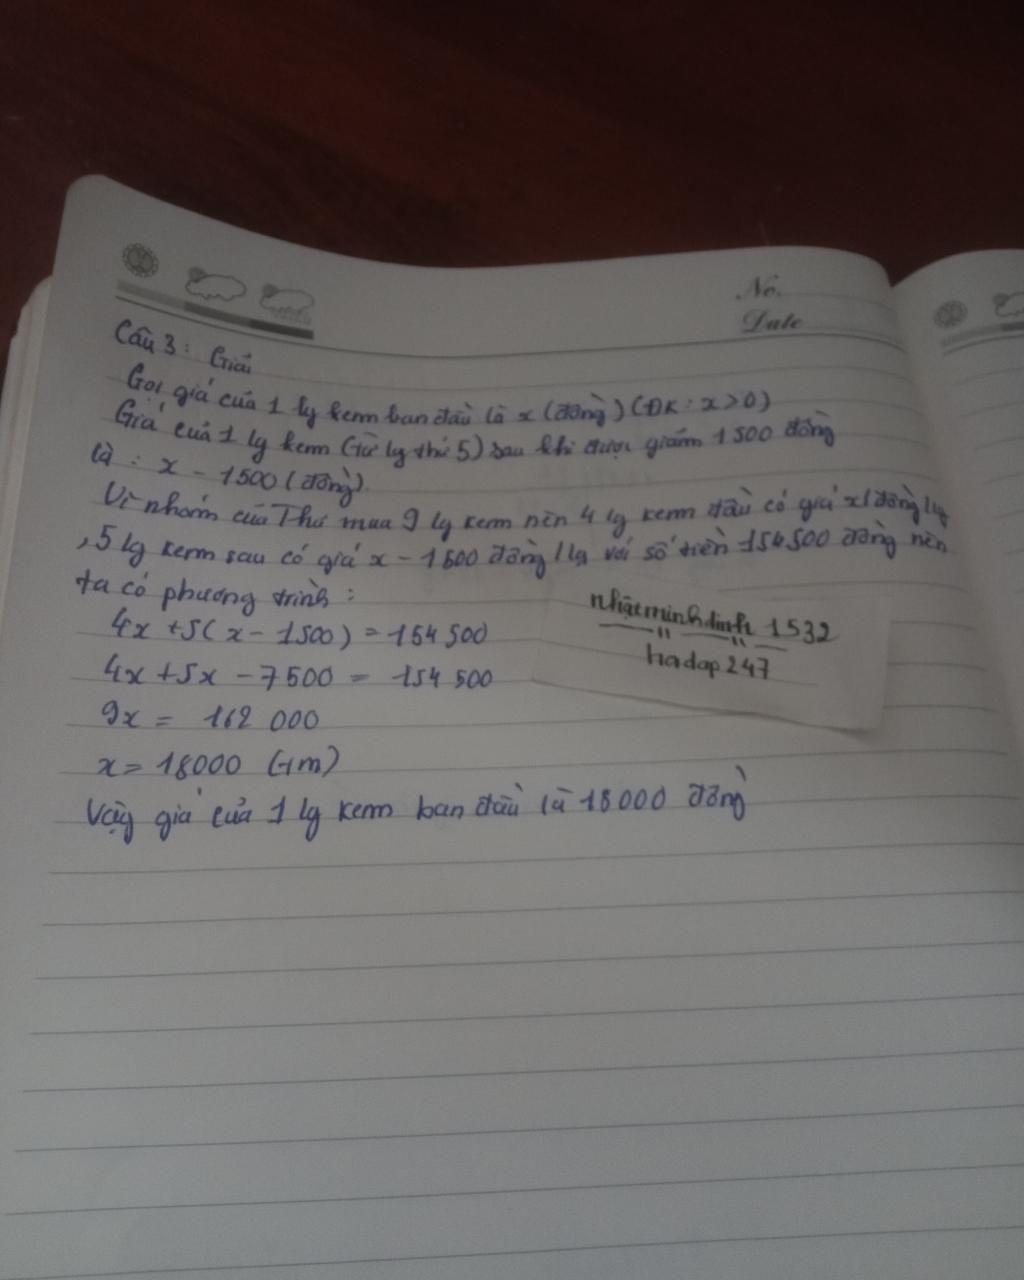 No.
Date
Câu 3: Giải
Gọi giá của 1 ly kem ban đầu là x (đồng) (ĐK: x > 0)
Giá của 1 ly kem (từ ly thứ 5) sau khi được giảm 1 500 đồng
là : x - 1500 (đồng).
Vì nhóm của Thư mua 9 ly kem nên 4 ly kem đầu có giá x (đồng) /ly
, 5 ly kem sau có giá x - 1 500 đồng / ly với số tiền 154 500 đồng nên
ta có phương trình :
4x + 5(x - 1500) = 154 500
4x + 5x - 7 500 = 154 500
9x = 162 000
x = 18000 (tm)
Vậy giá của 1 ly kem ban đầu là 18 000 đồng
nhatminhdinh 1532
hoidap247